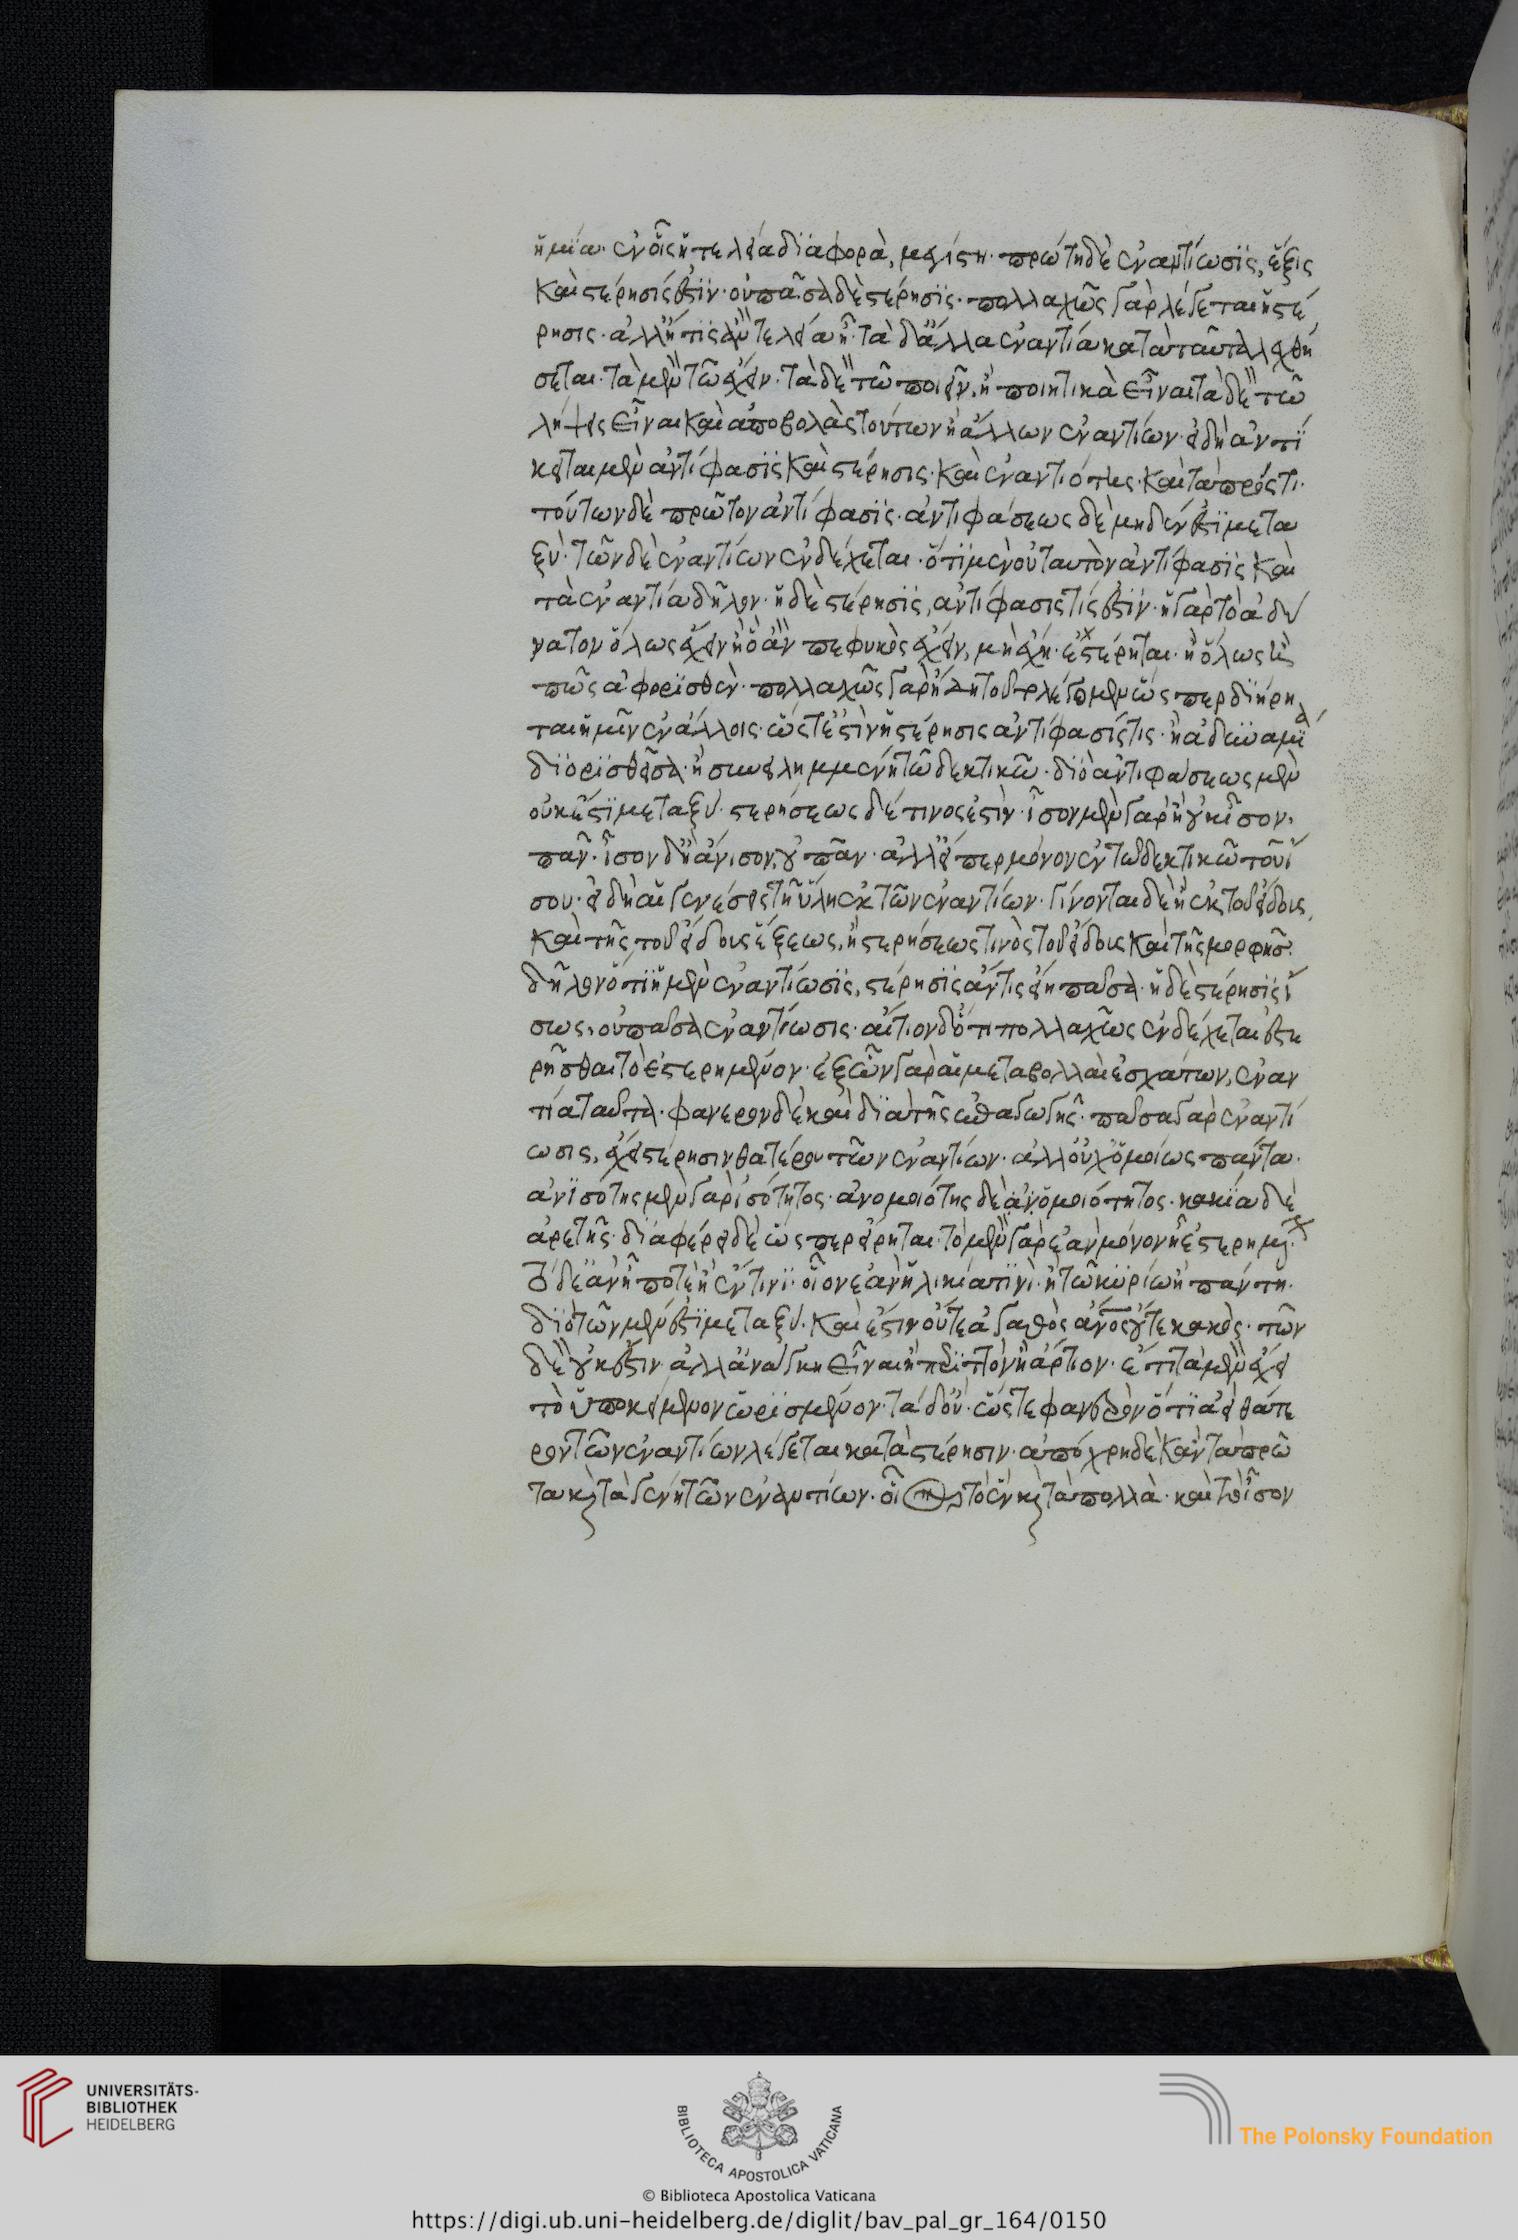 ἡ μία· ἐν οἷς ἡ τελεία διαφορὰ, μεγίστη· πρώτη δὲ ἐναντίωσις, ἕξις
καὶ στέρησίς ἐστιν· οὐ πᾶσα δὲ στέρησις· πολλαχῶς γὰρ λέγεται ἡ στέ
ρησις· ἀλλ' ἥτις ἂν τελεία ᾖ· τὰ δ' ἄλλα ἐναντία κατὰ ταῦτα λεχθή
σεται· τὰ μὲν τῶ ἔχειν· τὰ δὲ τῶ ποιεῖν, ἢ ποιητικὰ εἶναι τὰ δὲ τῶ
λήψεις εἶναι καὶ ἀποβολὰς τούτων ἢ ἄλλων ἐναντίων· εἰ δὴ ἀντί
κειται μὲν ἀντίφασις καὶ στέρησις· καὶ ἐναντιότης· καὶ τὰ πρός τι·
τούτων δὲ πρῶτον ἀντίφασις· ἀντιφάσεως δὲ μηδέν ἐστι μετα
ξύ· τῶν δὲ ἐναντίων ἐνδέχεται· ὅτι μὲν οὐ ταυτὸν ἀντίφασις καὶ
τὰ ἐναντία δῆλον· ἡ δὲ στέρησις, ἀντίφασις τίς ἐστιν· ἢ γὰρ τὸ ἀδύ
νατον ὅλως ἔχειν ἢ ὃ ἂν πεφυκὸς ἔχειν, μὴ ἔχη· ἐστέρηται· ἢ ὅλως ἢ
πῶς ἀφορισθὲν· πολλαχῶς γὰρ ἤδη τοῦτο λέγομεν ὥσπερ διήρη
ται ἡμῖν ἐν ἄλλοις· ὥστε ἐστὶν ἡ στέρησις ἀντίφασίς τις· ἢ ἀδυναμία
διορισθεῖσα· ἢ συνειλημμένη τῶ δεκτικῶ· διὸ ἀντιφάσεως μὲν
οὐκ ἔστι μεταξύ· στερήσεως δέ τινος ἐστὶν· ἴσον μὲν γὰρ ἢ οὐκ ἴσον·
πᾶν· ἴσον δ' ἢ ἄνισον, οὐ πᾶν· ἀλλ' εἴπερ μόνον ἐν τῶ δεκτικῶ τοῦ ἴ
σου· εἰ δὴ αἱ γενέσεις τῆ ὕλη ἐκ τῶν ἐναντίων· γίνονται δὲ ἢ ἐκ τοῦ εἴδους,
καὶ τῆς τοῦ εἴδους ἕξεως, ἢ στερήσεως τινὸς τοῦ εἴδους καὶ τῆς μορφῆς·
δῆλον ὅτι ἡ μὲν ἐναντίωσις, στέρησις ἄν τις εἴη πᾶσα· ἡ δὲ στέρησις ἴ
σως, οὐ πᾶσα ἐναντίωσις· αἴτιον δ' ὅτι πολλαχῶς ἐνδέχεται ἐστε
ρῆσθαι τὸ ἐστερημένον· ἐξ ὧν γὰρ αἱ μεταβολλαὶ ἐσχάτων, ἐναν
τία ταῦτα· φανερὸν δὲ καὶ διὰ τῆς ἐπαγωγῆς· πᾶσα γὰρ ἐναντί
ωσις, ἔχει στέρησιν θατέρου τῶν ἐναντίων· ἀλλ' οὐχ ὁμοίως πάντα·
ἀνισότης μὲν γὰρ ἰσότητος· ἀνομοιότης δὲ ἀνομοιότητος· κακία δὲ
ἀρετῆς· διαφέρει δὲ ὥσπερ εἴρηται· τὸ μὲν γὰρ ἐὰν μόνον ἦ ἐστερημένον·
τὸ δὲ ἂν ἦ ποτὲ ἢ ἔν τινι· οἷον ἐὰν ἡλικία τινὶ· ἢ τῶ κυρίω ἢ πάντη·
διὸ τῶν μέν ἐστι μεταξύ· καὶ ἔστιν οὔτε ἀγαθὸς ἄνος οὔτε κακὸς· τῶν
δὲ οὐκ ἔστιν· ἀλλ' ἀνάγκη εἶναι ἢ περιττὸν ἢ ἄρτιον· ἔτι τὰ μὲν ἔχει
τὸ ὑποκείμενον ὡρισμένον· τὰ δ' οὔ· ὥστε φανερὸν ὅτι ἀεὶ θάτε
ρον τῶν ἐναντίων λέγεται κατὰ στέρησιν· ἀπόχρη δὲ κἂν τὰ πρῶ
τα καὶ τὰ γένη τῶν ἐναντίων· οἷον τὸ ἓν καὶ τὰ πολλὰ· καὶ τὸ ἴσον
UNIVERSITÄTS-
BIBLIOTHEK
HEIDELBERG
BIBLIOTECA APOSTOLICA VATICANA
The Polonsky Foundation
© Biblioteca Apostolica Vaticana
https://digi.ub.uni-heidelberg.de/diglit/bav_pal_gr_164/0150